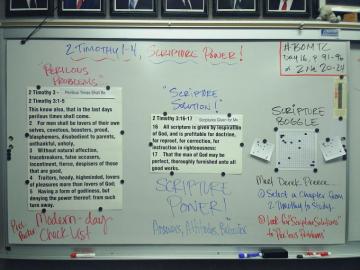 2 Timothy 1-4, Scripture Power!
#BOMTC
Day 16, p. 91-96
or 2 Ne 20-24
"Perilous
Problems"
2 Timothy 3 - Perilous Times Shall Be
2 Timothy 3:1-5
This know also, that in the last days
perilous times shall come.
2 For men shall be lovers of their own
selves, covetous, boasters, proud,
blasphemers, disobedient to parents,
unthankful, unholy,
3 Without natural affection,
trucebreakers, false accusers,
incontinent, fierce, despisers of those
that are good,
4 Traitors, heady, highminded, lovers
of pleasures more than lovers of God;
5 Having a form of godliness, but
denying the power thereof: from such
turn away.
Modern-day
Check List
"Scripture
Solution!"
2 Timothy 3:16-17 Scriptures Given for Me
16 All scripture is given by inspiration
of God, and is profitable for doctrine,
for reproof, for correction, for
instruction in righteousness:
17 That the man of God may be
perfect, thoroughly furnished unto all
good works.
Scripture
Power!
Answers, Attitudes, Behavior
Scripture
Boggle
Meet Derek Preece...
① Select a Chapter from
2 Timothy to Study.
② Look for "Scripture Solutions"
to Perilous Problems